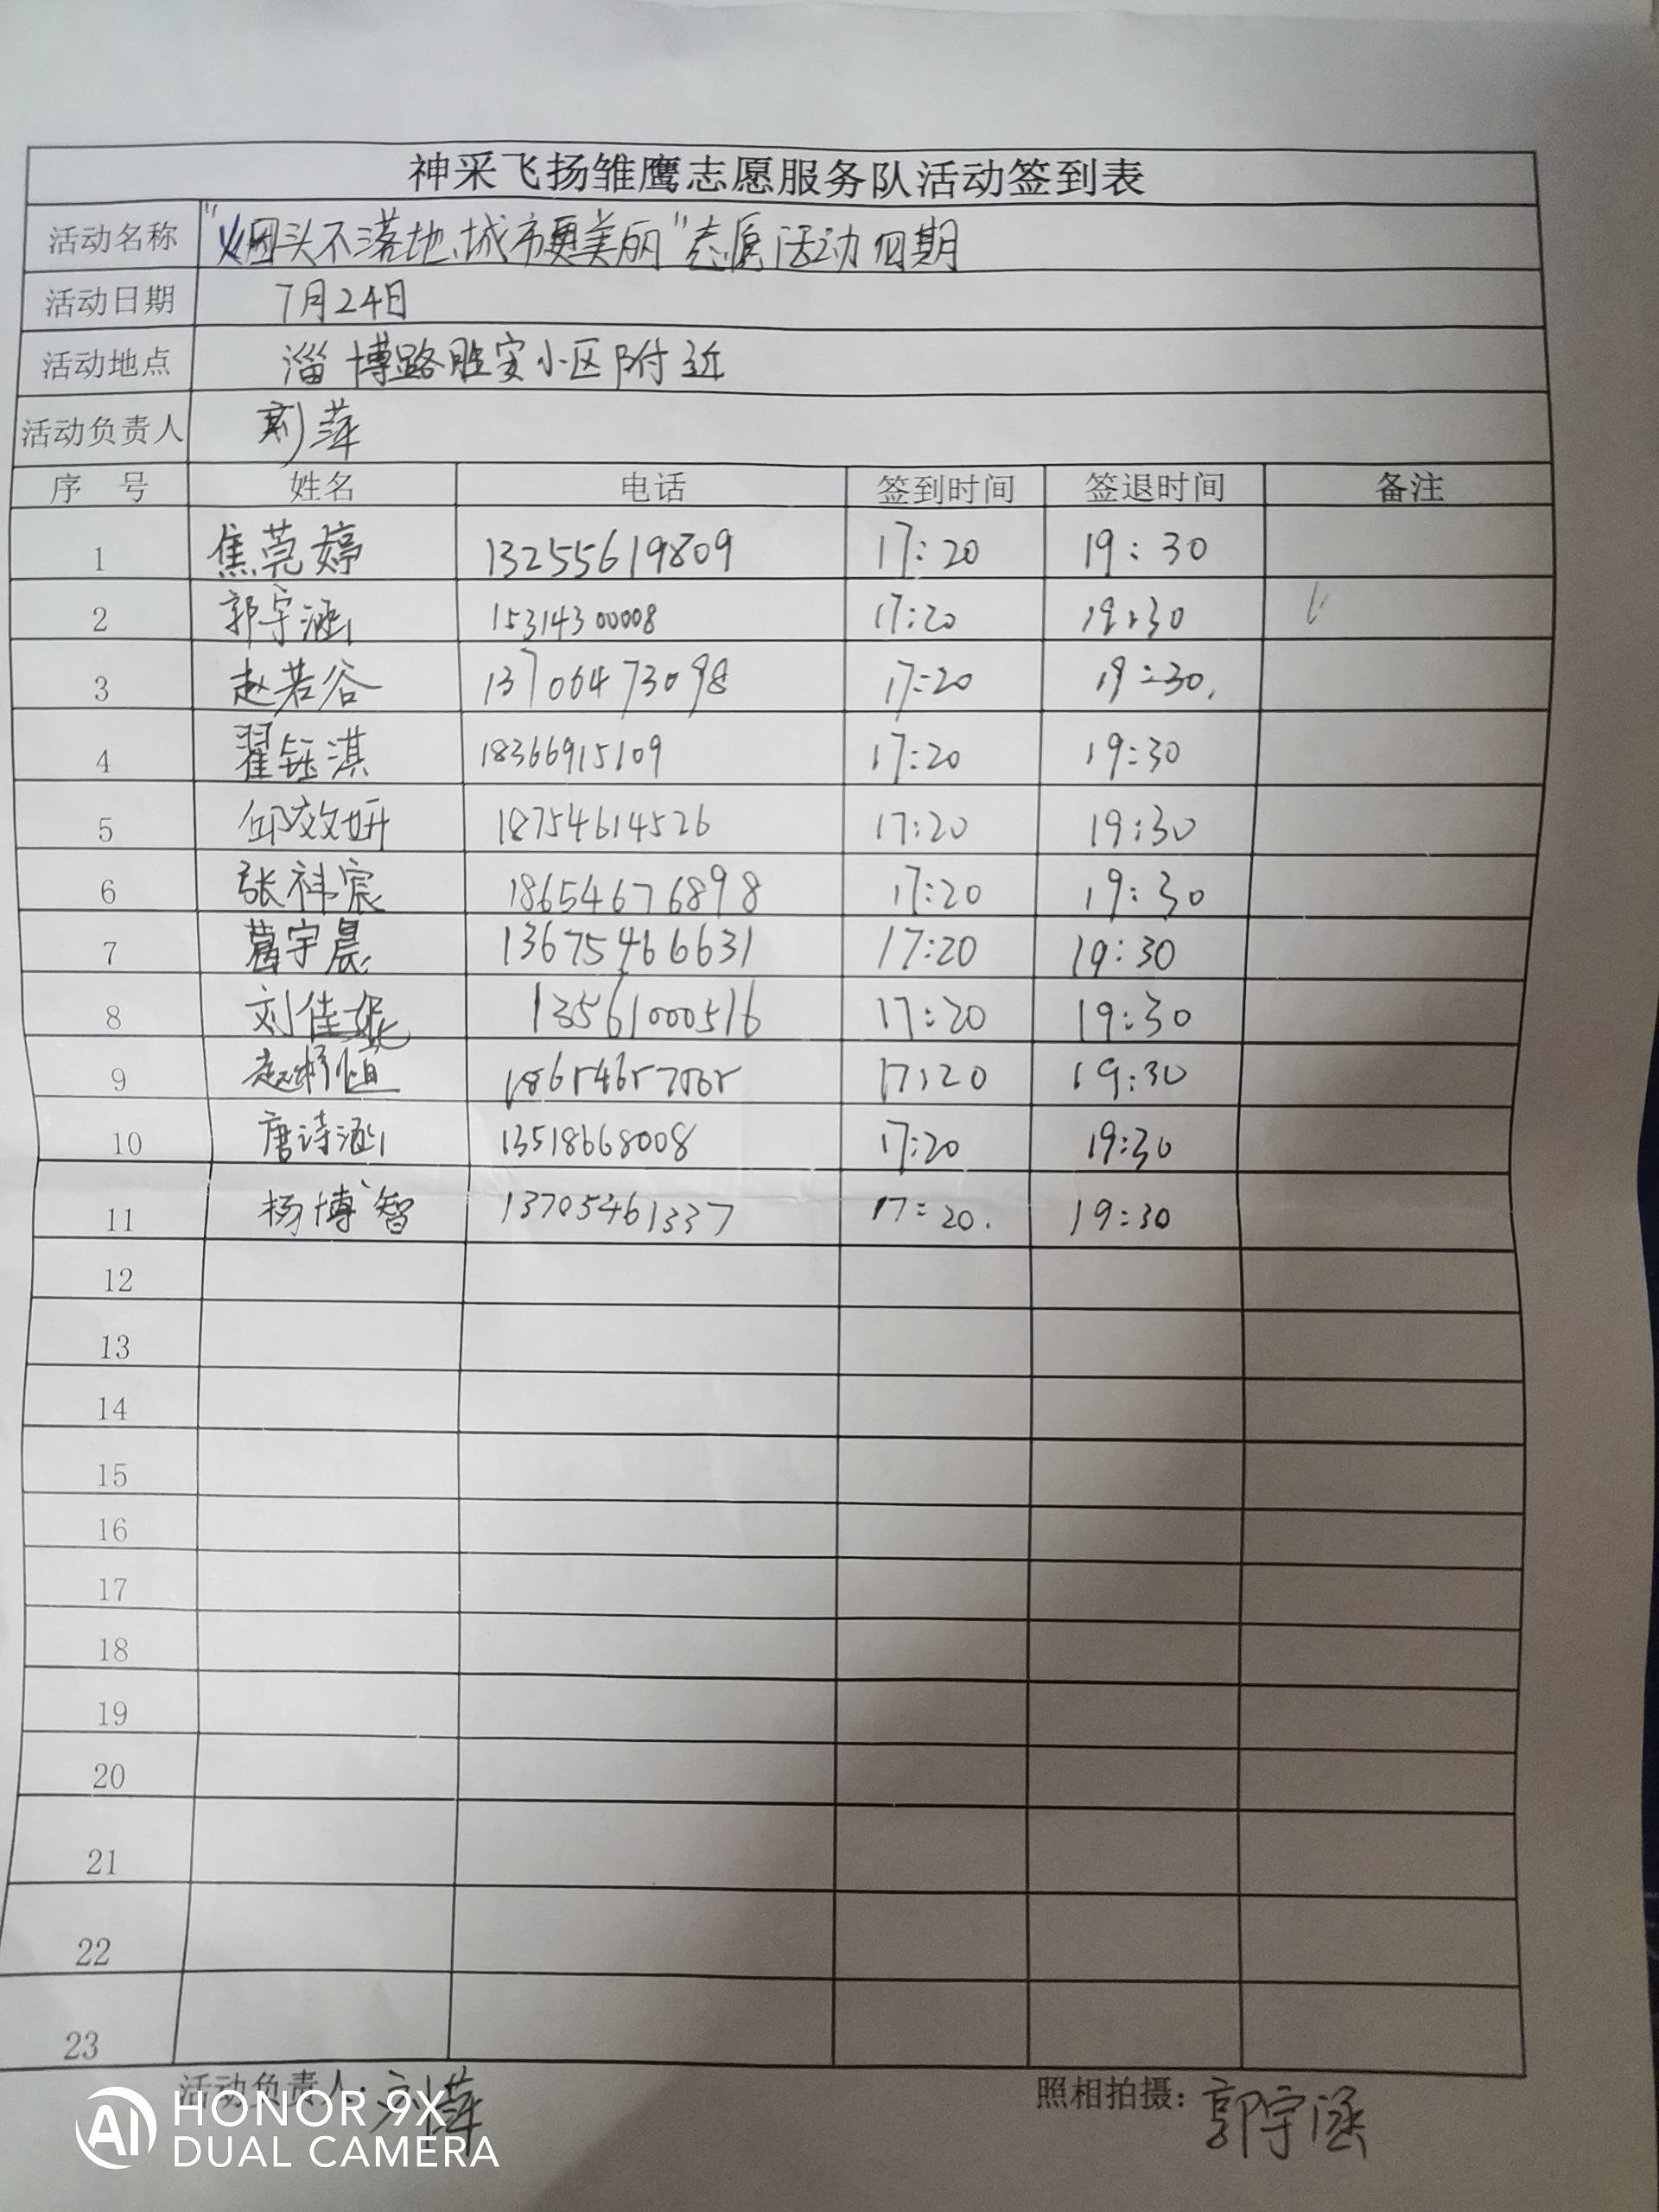 神采飞扬雏鹰志愿服务队活动签到表
活动名称 "烟头不落地、城市更美丽"志愿活动四期
活动日期 7月24日
活动地点 淄博路胜安小区附近
活动负责人 刘萍
序 号 姓名 电话 签到时间 签退时间 备注
1 焦莞婷 13255619809 17:20 19:30
2 郭宇涵 15314300008 17:20 19:30
3 赵若谷 13706473098 17:20 19:30
4 翟钰淇 18366915109 17:20 19:30
5 邱效妍 18754614526 17:20 19:30
6 张祎宸 18654676898 17:20 19:30
7 葛宇晨 13675466631 17:20 19:30
8 刘佳妮 13561000516 17:20 19:30
9 17:20 19:30
10 唐诗涵 13518668008 17:20 19:30
11 杨博智 13705461337 17:20 19:30
12
13
14
15
16
17
18
19
20
21
22
23
活动负责人:刘萍 照相拍摄:郭宇涵
HONOR 9X
DUAL CAMERA
AI